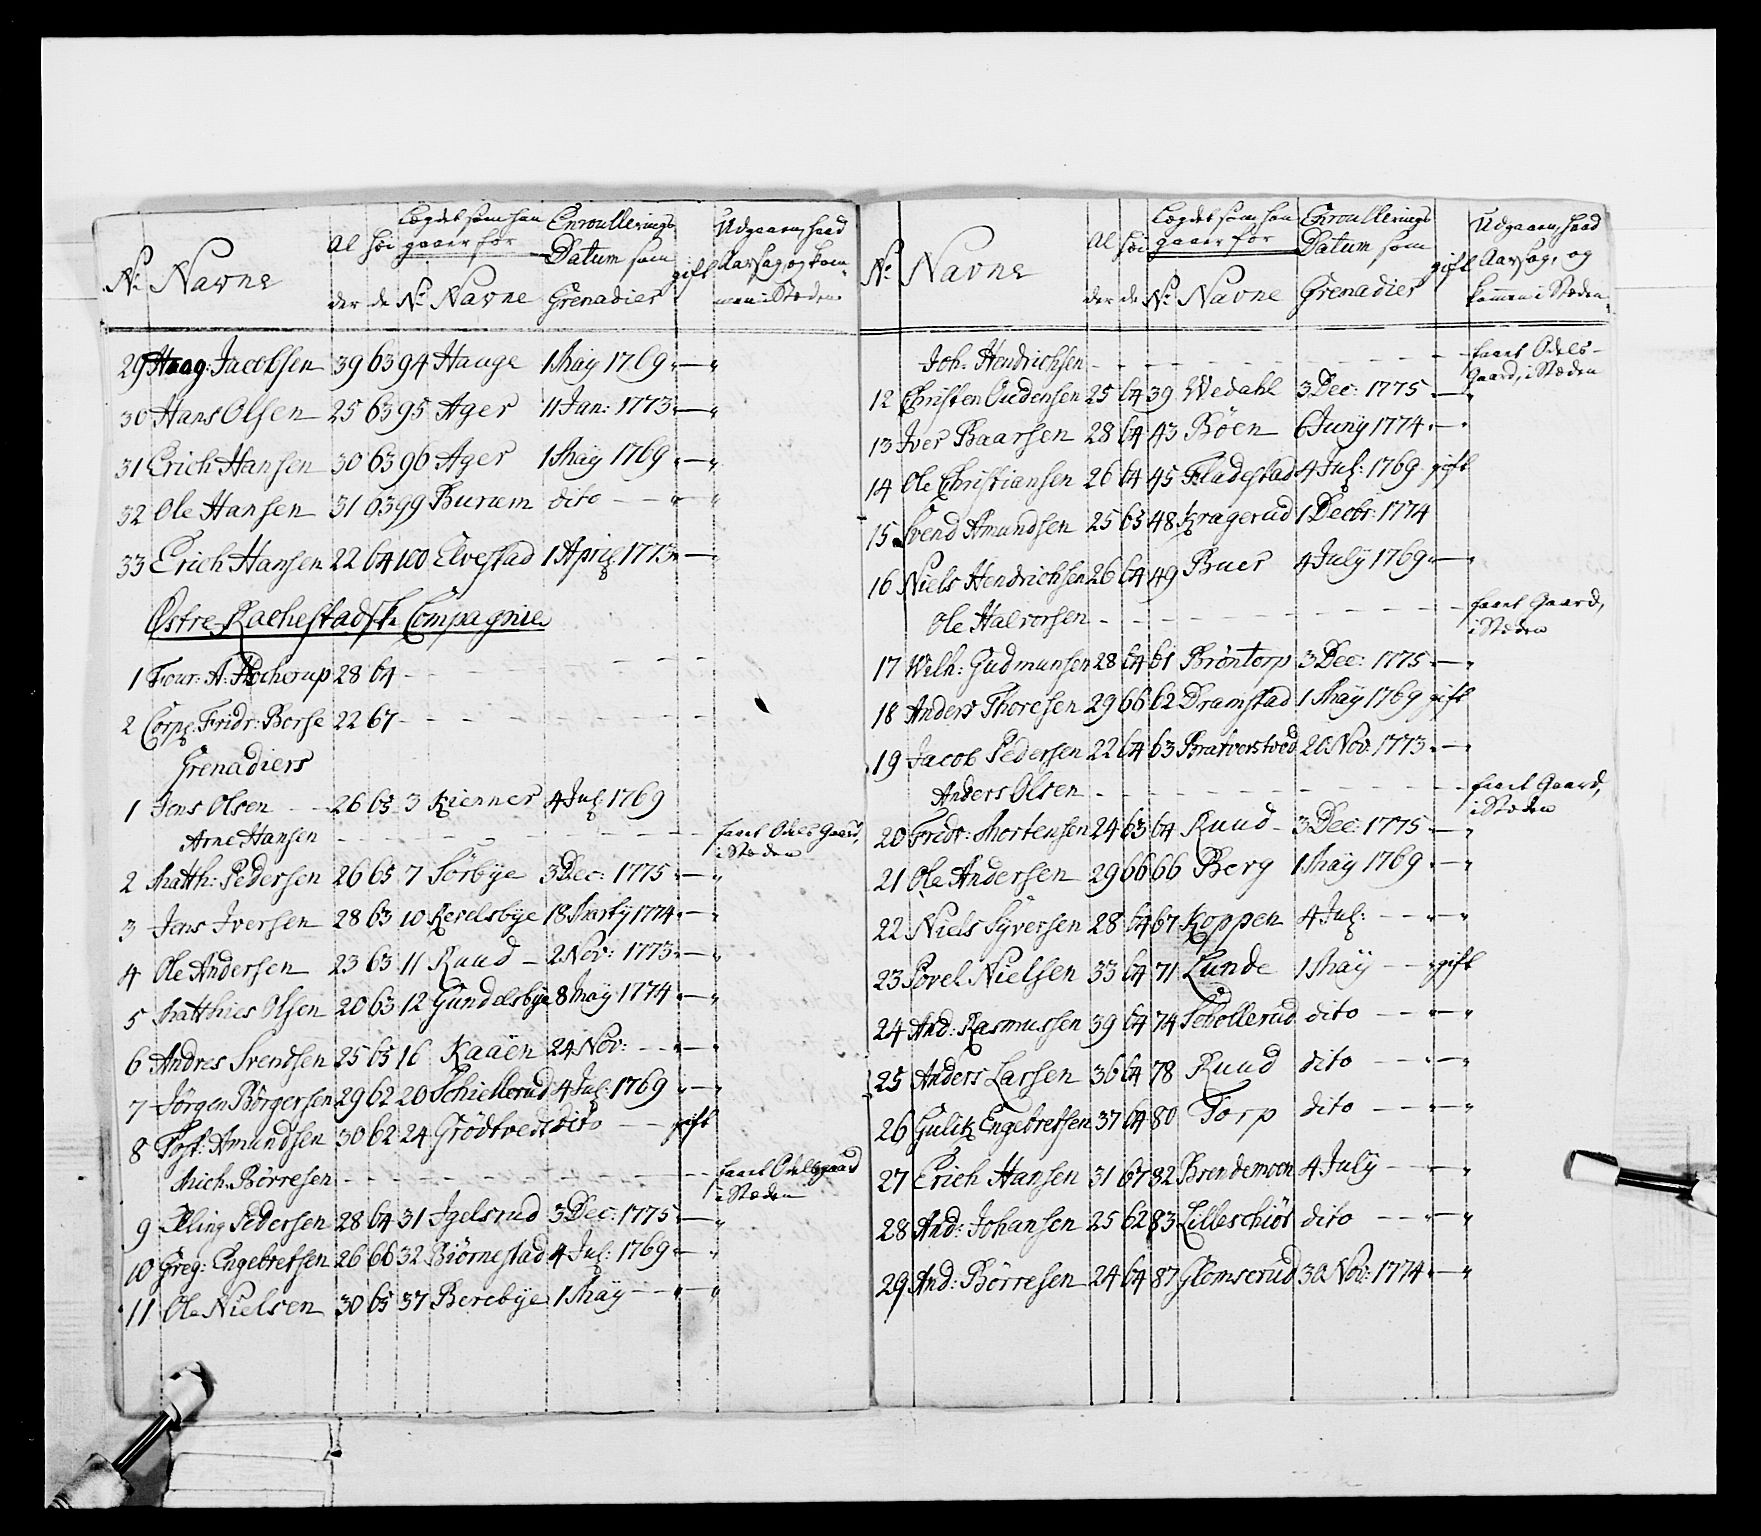 Lægdet som han Enroullerings Udgaaen, hvad
Al Høi gaaer for Datum som gift Aarsag og kom-
No Navne der de No Navne Grenadier men i Stæden
29 Haag: Jacobsen 39 63 94 Hauge 1 May 1769 " — "
30 Hans Olsen 25 63 95 Ager 11 Jan: 1773 " — "
31 Erich Hansen 30 63 96 Ager 1 May 1769 " — "
32 Ole Hansen 31 63 99 Burum dito — — " "
33 Erich Hansen 22 64 100 Elvestad 1 April 1773 " — "
Østre Rachestadsk Compagnie
1 Four: A: 28 64 - - - - - -
2 Corpl: Fridr: Borse 22 67 - - - - - -
Grenadiers
1 Jens Olsen - - 26 65 3 Kienner 4 Jul: 1769
Arne Hansen - - - - - - faaet Odels Gaard,
i Stæden
2 Matth: Pedersen 26 65 7 Sørbye 3 Dec: 1775 " — "
3 Jens Iversen 28 63 10 Reselsbye 18 Martÿ 1774 " — "
4 Ole Andersen 23 63 11 Ruud - 2 Nov: 1773 " — "
5 Matthies Olsen 20 63 12 Gundelsbye 8 May 1774 " — "
6 Andres Svendsen 25 65 16 Kaaen 24 Nov: — " — "
7 Jørgen Børgersen 29 62 20 Schiellerud 4 Jul: 1769 " — "
8 Tost: Amundsen 30 62 24 Grødtvedt dito — — gift
Mich: Børresen - - - - - - faaet Odelsgaard
i Stæden
9 Elling Pedersen 28 64 31 Igelsrud 3 Dec: 1775 " — "
10 Greg: Engebretsen 26 66 32 Biørnestad 4 Jul: 1769 " — "
11 Ole Nielsen 30 65 37 Berebye 1 May — — " "
Lægdet som han Enroullerings Udgaaen, hvad
Al Høi gaaer for Datum som gift Aarsag, og
No Navne der de No Navne Grenadier kommen i Stæden
Joh: Hendrichsen - - - - - - faaet Odels-
Gaard, i Stæden
12 Christen Oudensen 25 64 39 Wedahl 3 Dec: 1775 " — "
13 Iver Baarsen 28 64 43 Bøen 6 Juny 1774 " — "
14 Ole Christiansen 26 64 45 Fladestad 4 Jul: 1769 gift
15 Svend Amundsen 25 65 48 Kragerud 1 Decbr: 1774
16 Niels Hendrichsen 26 64 49 Buer 4 July 1769 " — "
Ole Halvorsen - - - - - - faaet Gaard,
i Stæden
17 Wilh: Gudmunsen 28 64 61 Brøntorp 3 Dec: 1775 " — "
18 Anders Thoresen 29 66 62 Dramstad 1 May 1769 gift
19 Jacob Pedersen 22 64 63 20 Nov 1773 " — "
Anders Olsen - - - - - - faaet Gaard,
i Stæden
20 Fridr: Mortensen 24 63 64 Ruud - 3 Dec: 1775 " — "
21 Ole Andersen 29 66 66 Berg 1 May 1769 " — "
22 Niels Syversen 28 64 67 Koppen 4 Jul: — — " "
23 Povel Nielsen 33 64 71 Lunde 1 May — — gift
24 And: Rasmussen 39 64 74 Schollerud dito — — " "
25 Anders Larsen 36 64 78 Ruud dito — — " "
26 Gulik Engebretsen 37 64 80 Torp dito — — " "
27 Erich Hansen 31 67 82 Brendemoen 4 July — — " "
28 And: Johansen 25 62 83 Lilleschiøt dito — — " "
29 And: Børresen 24 64 87 Glomserud 30 Nov: 1774 " — "